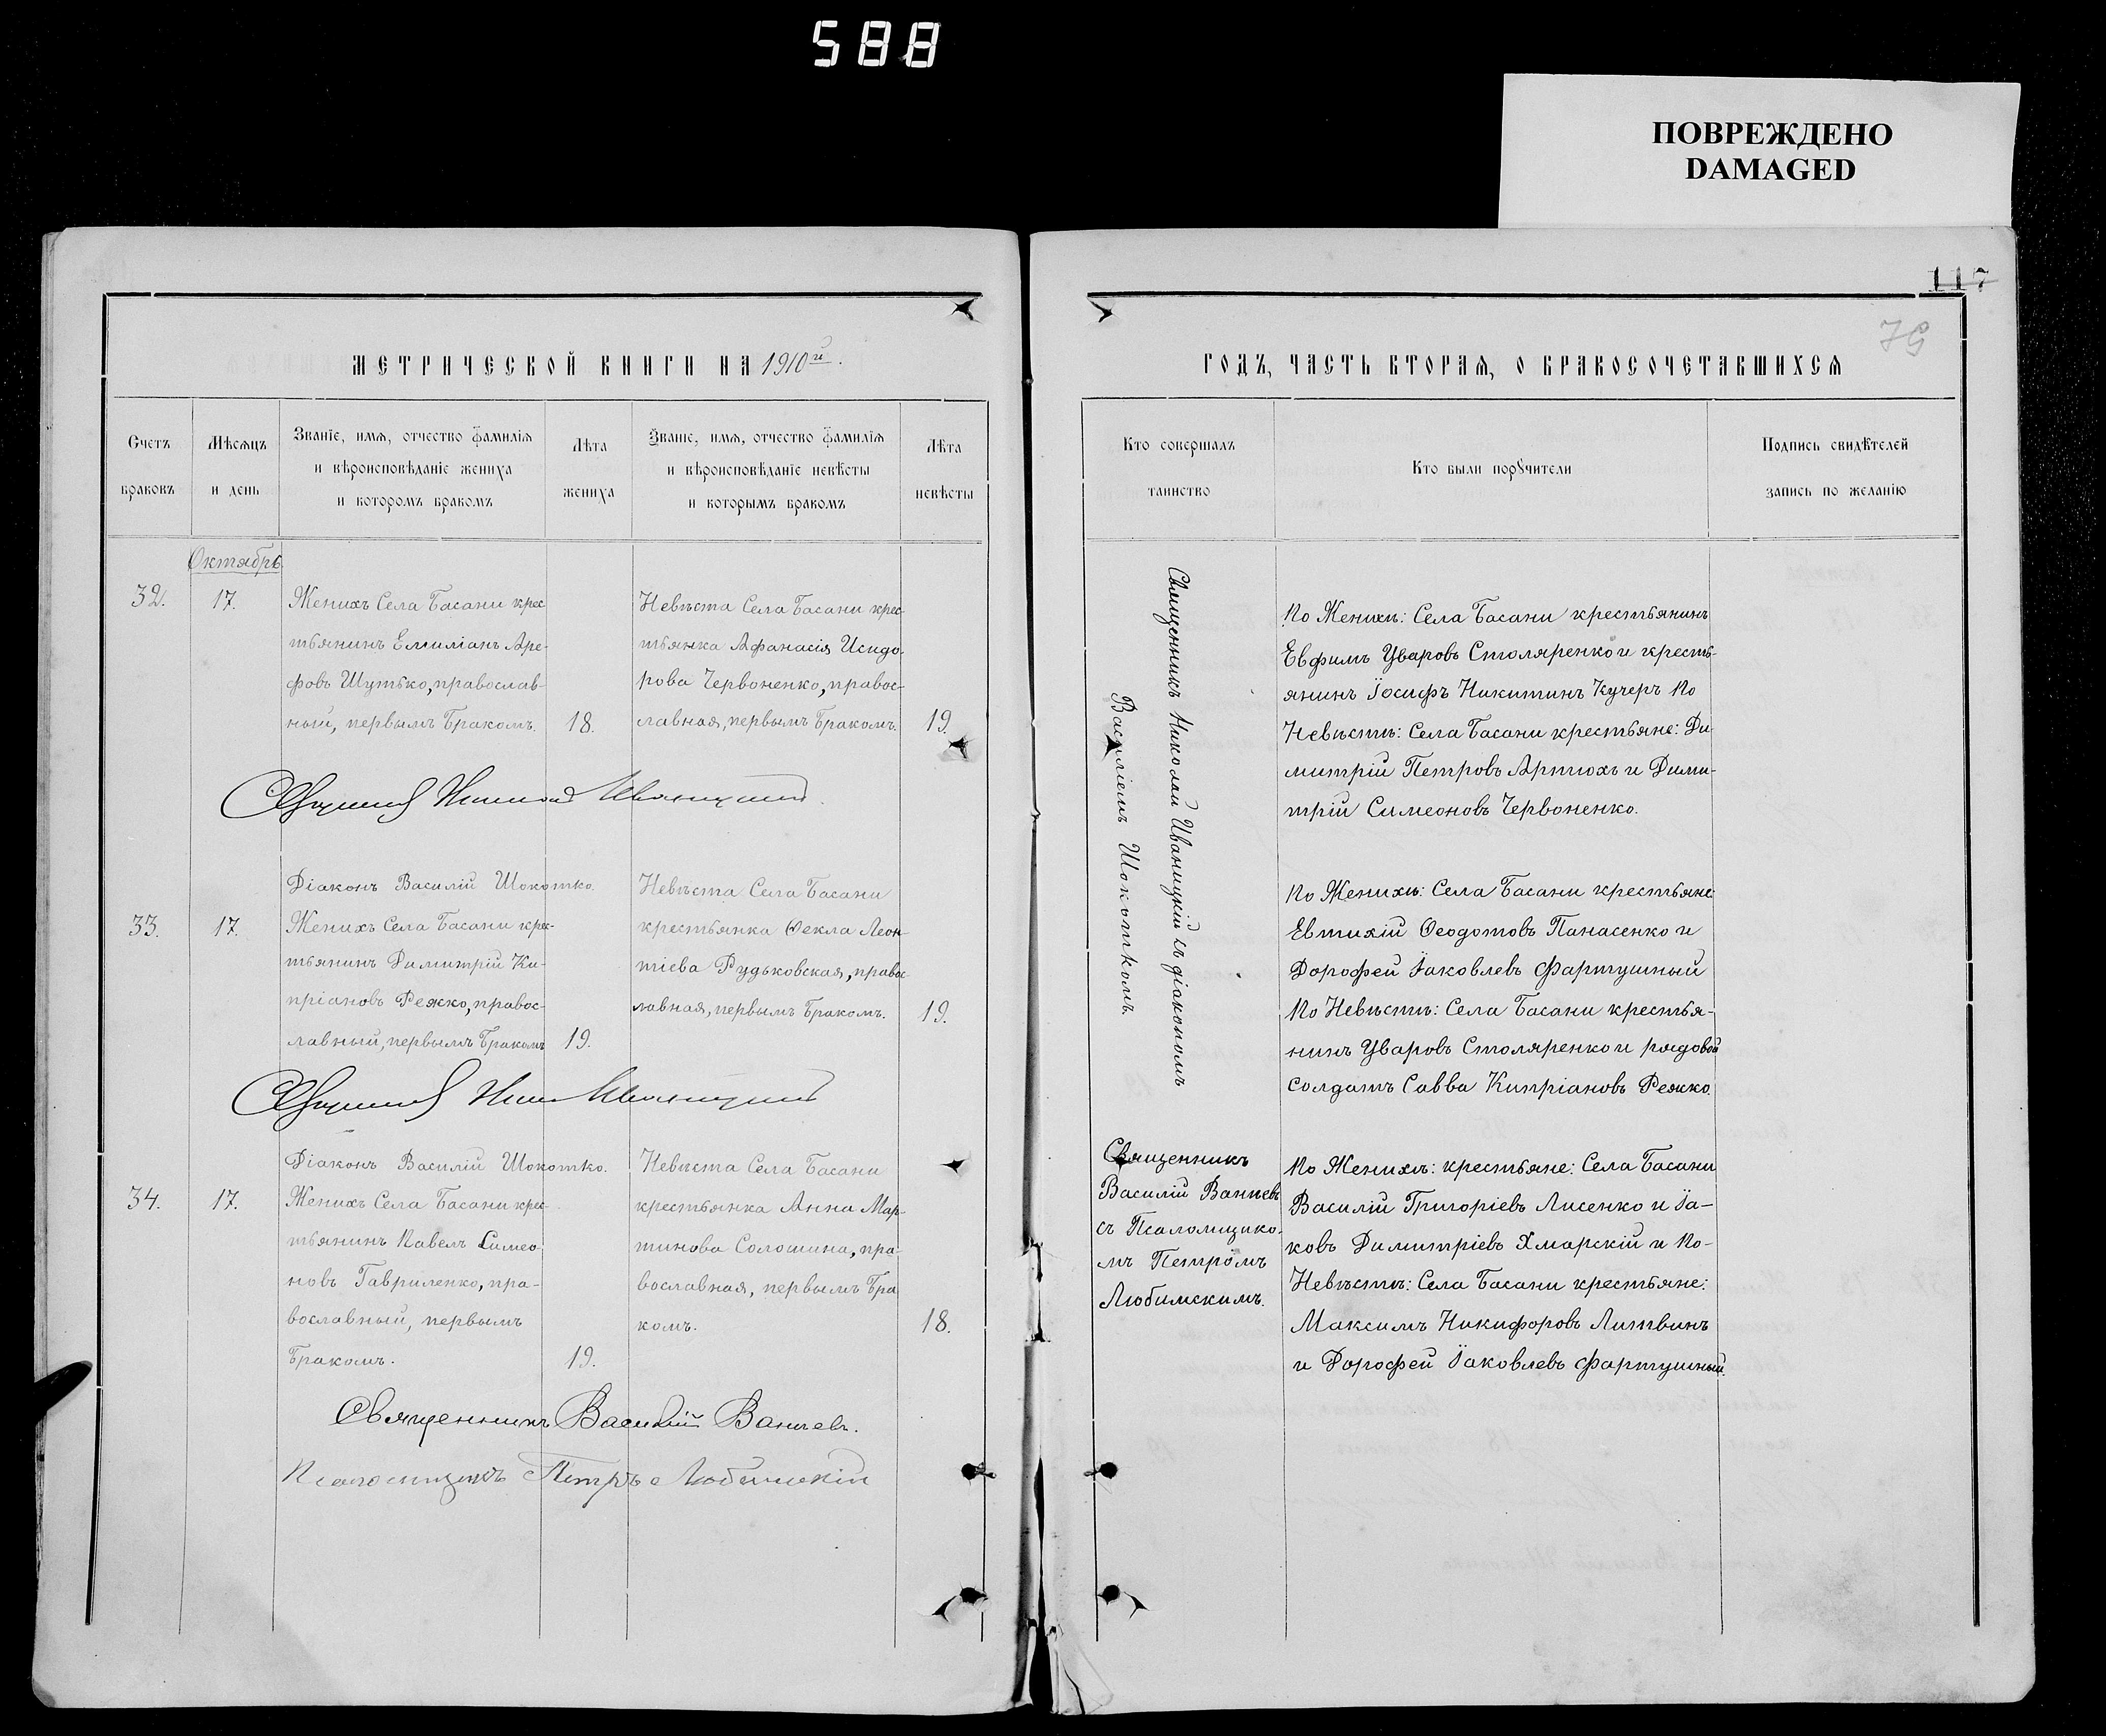 588
ПОВРЕЖДЕНО
DAMAGED
117
МЕТРИЧЕСКОЙ КНИГИ НА 1910й.
Счетъ
браковъ
Мѣсяцъ
и день
Званіе, имя, отчество фамилія
и вѣроисповѣданіе жениха
и которомъ бракомъ
Лѣта
жениха
Званіе, имя, отчество фамилія
и вѣроисповѣданіе невѣсты
и которымъ бракомъ
Лѣта
невѣсты
Октябрь
32.
17.
Женихъ Села Басани крес-
тьянинъ Емиліанъ Аре-
фовъ Шутько, православ-
ный, первымъ бракомъ.
18.
Невѣста Села Басани крес-
тьянка Афанасія Исидо-
рова Червоненко, правос-
лавная, первымъ бракомъ.
19.
Священникъ Николай Иваницкій
Діаконъ Василій Шокотко.
33.
17.
Женихъ Села Басани крес-
тьянинъ Димитрій Ки-
пріановъ Режко, правос-
лавный, первымъ бракомъ
19.
Невѣста Села Басани
крестьянка Ѳекла Леон-
тіева Рудьковская, правос-
лавная, первымъ бракомъ.
19.
Священникъ Ник Иваницкій
Діаконъ Василій Шокотко.
34.
17.
Женихъ Села Басани крес-
тьянинъ Павелъ Симео-
новъ Гавриленко, пра-
вославный, первымъ
бракомъ.
19.
Невѣста Села Басани
крестьянка Анна Мар-
тинова Солошина, пра-
вославная, первымъ бра
комъ.
18.
Священникъ Василій Ванчевъ.
Псаломщикъ Петръ Любимскій
ГОДЪ, ЧАСТЬ ВТОРАЯ, О БРАКОСОЧЕТАВШИХСЯ
Кто совершалъ
таинство
Кто были поручители
Подпись свидѣтелей
запись по желанію
Священникъ Николай Иваницкій съ діакономъ
Василіемъ Шокоткомъ.
По Женихѣ: Села Басани крестьянинъ
Евфимъ Уваровъ Столяренко и кресть-
янинъ Іосифъ Никитинъ Кучеръ По
Невѣстѣ: Села Басани крестьяне: Ди-
митрій Петровъ Артюхъ и Дими-
трій Симеоновъ Червоненко.
По Женихѣ: Села Басани крестьяне:
Евтихій Ѳеодотовъ Панасенко и
Дорофей Іаковлевъ Фартушный
По Невѣстѣ: Села Басани крестья-
нинъ Уваровъ Столяренко и рядовой
солдатъ Савва Кипріановъ Режко.
Священникъ
Василій Ванчевъ
съ Псаломщико-
мъ Петромъ
Любимскимъ.
По Женихѣ: крестьяне: Села Басани
Василій Григоріевъ Лисенко и Іа-
ковъ Димитріевъ Хмарскій и По-
Невѣстѣ: Села Басани крестьяне:
Максимъ Никифоровъ Литвинъ
и Дорофей Іаковлевъ Фартушный.